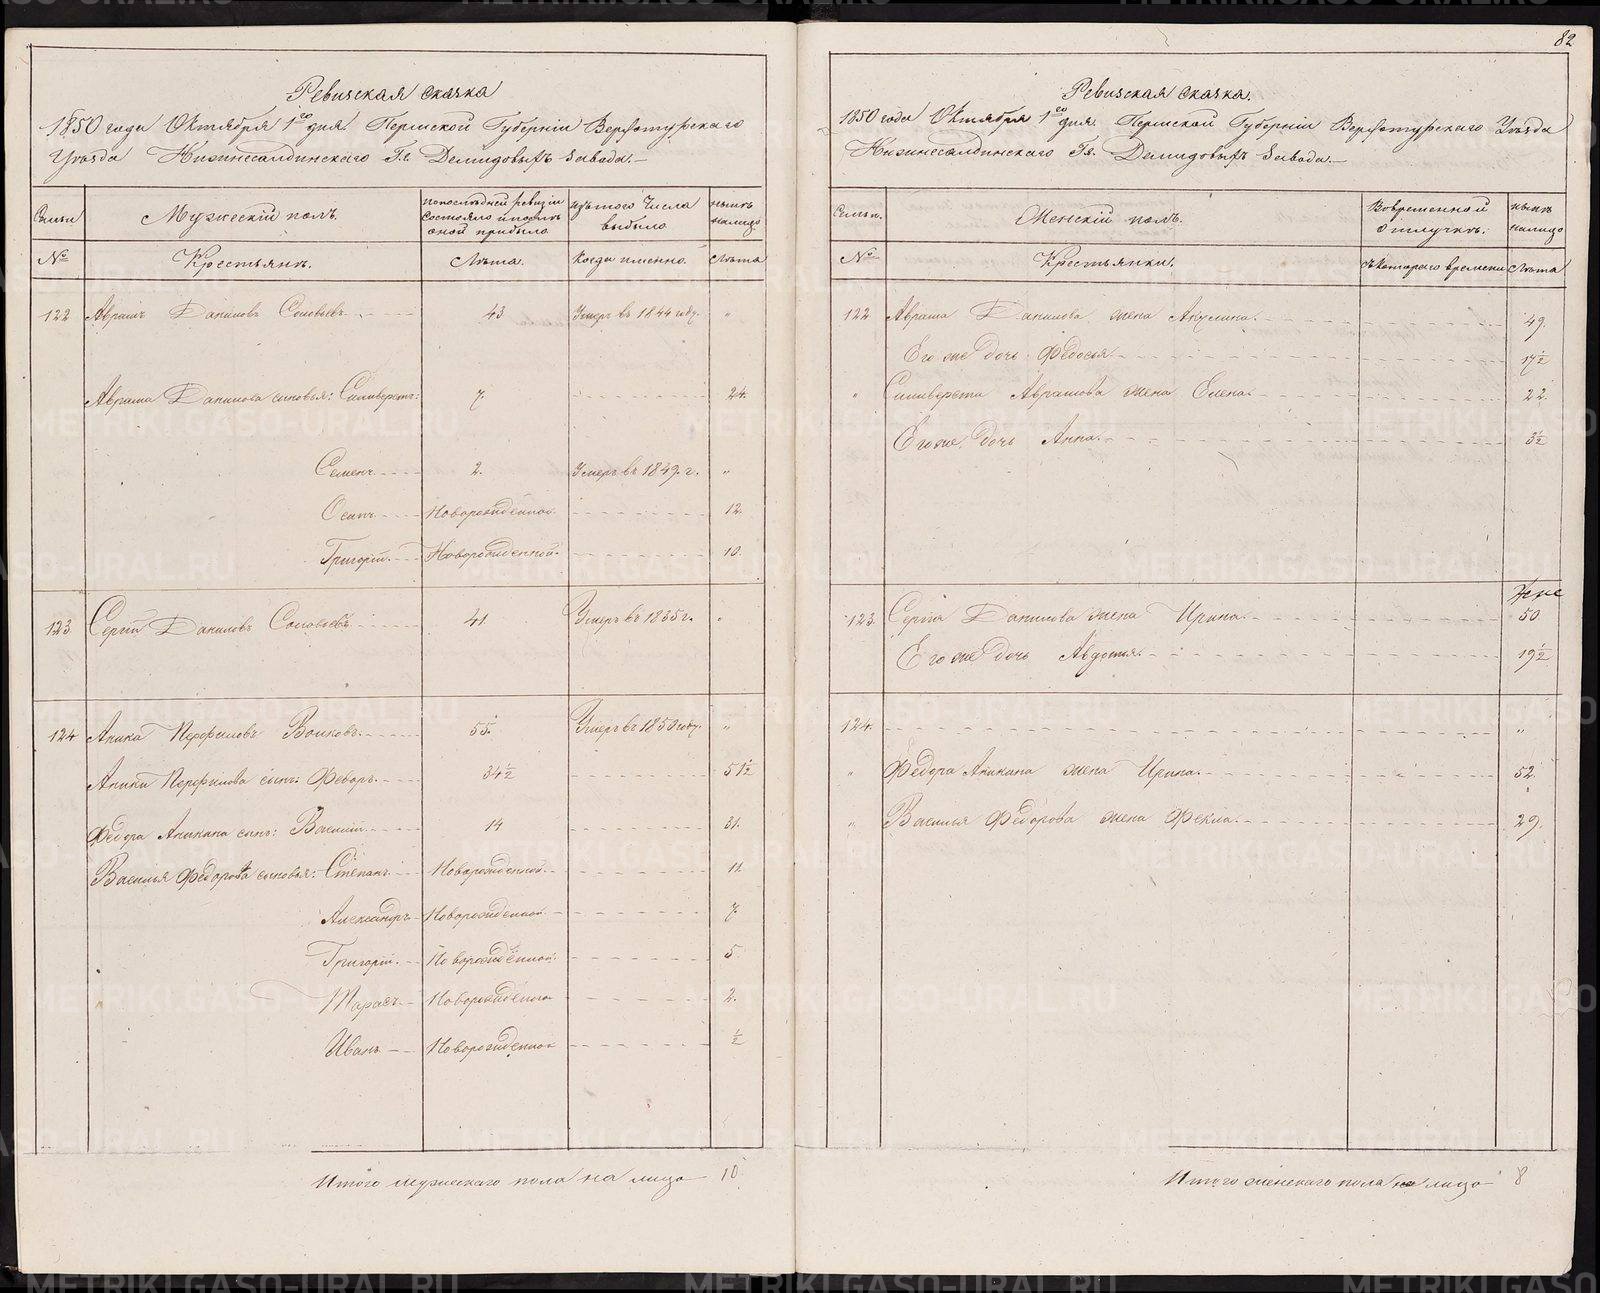 Ревизская сказка
1850 года Октября 1го дня. Пермской Губерніи Верхотурскаго
Уѣзда Нижнесалдинскаго Гг. Демидовыхъ завода.
Семьи
Мужескій полъ.
По последней ревизіи состояло и послѣ оной прибыло
Изъ того Числа выбыло
Нынѣ на лицо
№
Крестьянъ.
Лѣта.
Когда именно.
Лѣта
122 Аврамъ Даниловъ Соловьевъ 43 Умеръ въ 1844 году. „
Аврама Данилова сыновья: Силиверстъ: 7. 24.
Семенъ 2. Умеръ въ 1849. г. „
Осипъ Новорожденной 12.
Григорій. Новорожденной. 10.
123 Сергій Даниловъ Соловьевъ 41 Умеръ въ 1835 г. „
124 Аника Перфиловъ Волковъ. 55. Умеръ въ 1850 году. „
Аники Перфилова сынъ: Федоръ. 34½ 51½
Федора Аникина сынъ: Василій 14 31.
Василья Федорова сыновья: Степанъ Новорожденной. 11
Александръ Новорожденной. 7.
Григорій. Новорожденной. 5
Тарасъ Новорожденной 2.
Иванъ Новорожденной ½
Итого мужескаго пола на лицо 10
82
Ревизская сказка.
1850 года Октября 1го дня. Пермской Губерніи Верхотурскаго Уѣзда
Нижнесалдинскаго Гг. Демидовыхъ завода.
Семьи.
Женскій полъ.
Во временной отлучкѣ.
Нынѣ на лицо
№
Крестьянки.
Съ котораго времени
Лѣта
122 Аврама Данилова жена Акулина. 49.
Его же дочь Федосья 17½
„ Силиверста Аврамова жена Елена. 22.
Его же дочь Анна. 3½
123. Сергія Данилова жена Ирина. 50.
Его же дочь Авдотья. 19½
124. „
„ Федора Аникина жена Ирина. 52.
„ Василья Федорова жена Фекла. 29.
Итого женскаго пола на лицо 8
METRIKI.GASO-URAL.RU